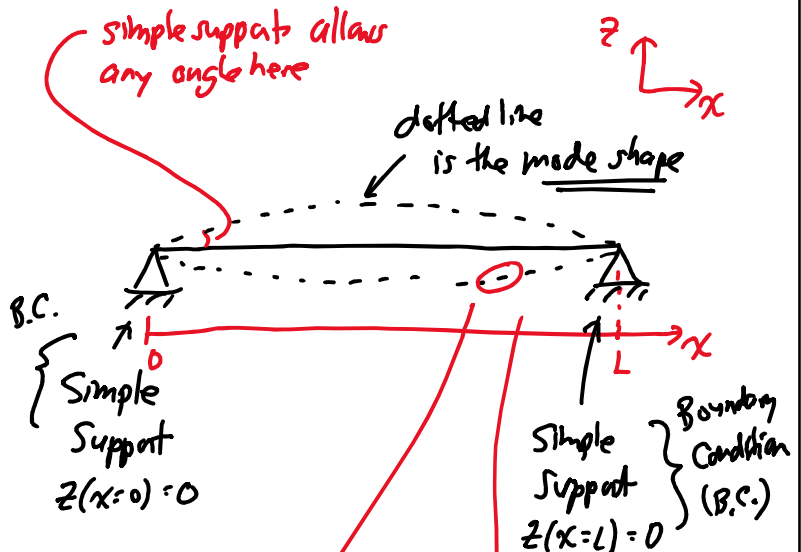 simple support allows
any angle here
z
x
dotted line
is the mode shape
B.C.
0
x
L
Simple
Support
Z(x=0)=0
Simple
Support
Z(x=L)=0
Boundary
Condition
(B.C.)